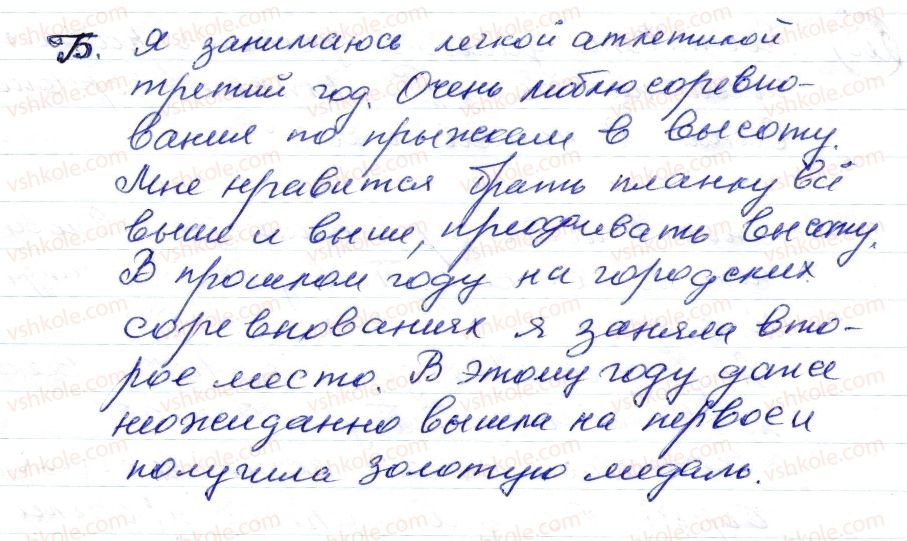 Б. Я занимаюсь легкой атлетикой
третий год. Очень люблю соревно-
вания по прыжкам в высоту.
Мне нравится брать планку всё
выше и выше, преодолевать высоту.
В прошлом году на городских
соревнованиях я заняла вто-
рое место. В этому году даже
неожиданно вышла на первое и
получила золотую медаль.